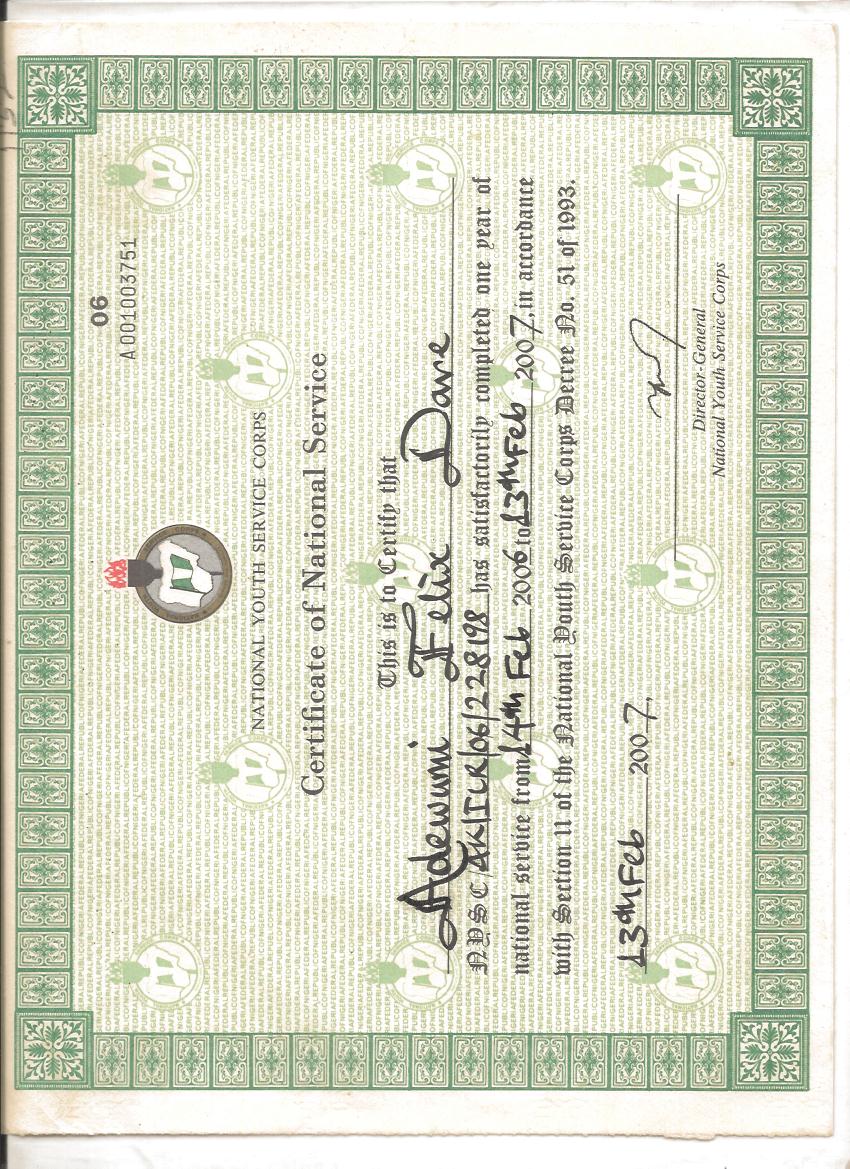 06
A001003751
NATIONAL YOUTH SERVICE CORPS
Certificate of National Service
This is to Certify that
Adewumi Felix Dare
NYSC/AK/ILR/06/228198 has satisfactorily completed one year of
national service from 14th Feb 2006 to 13th Feb 2007, in accordance
with Section 11 of the National Youth Service Corps Decree No. 51 of 1993.
13th Feb 2007.
Director-General
National Youth Service Corps